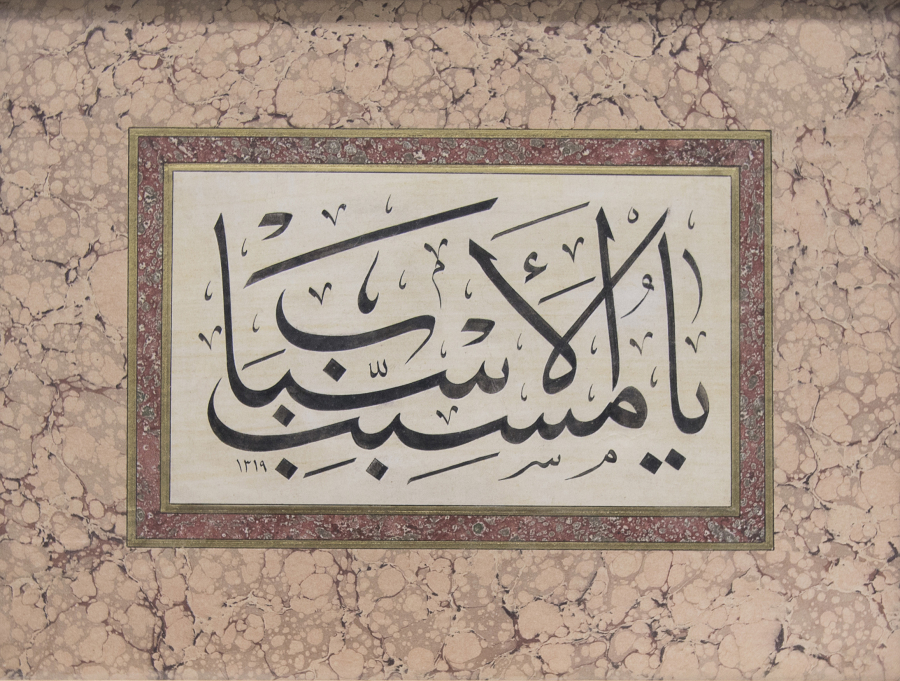 يَا مُسَبِّبَ الْأَسْبَابِ
١٣١٩